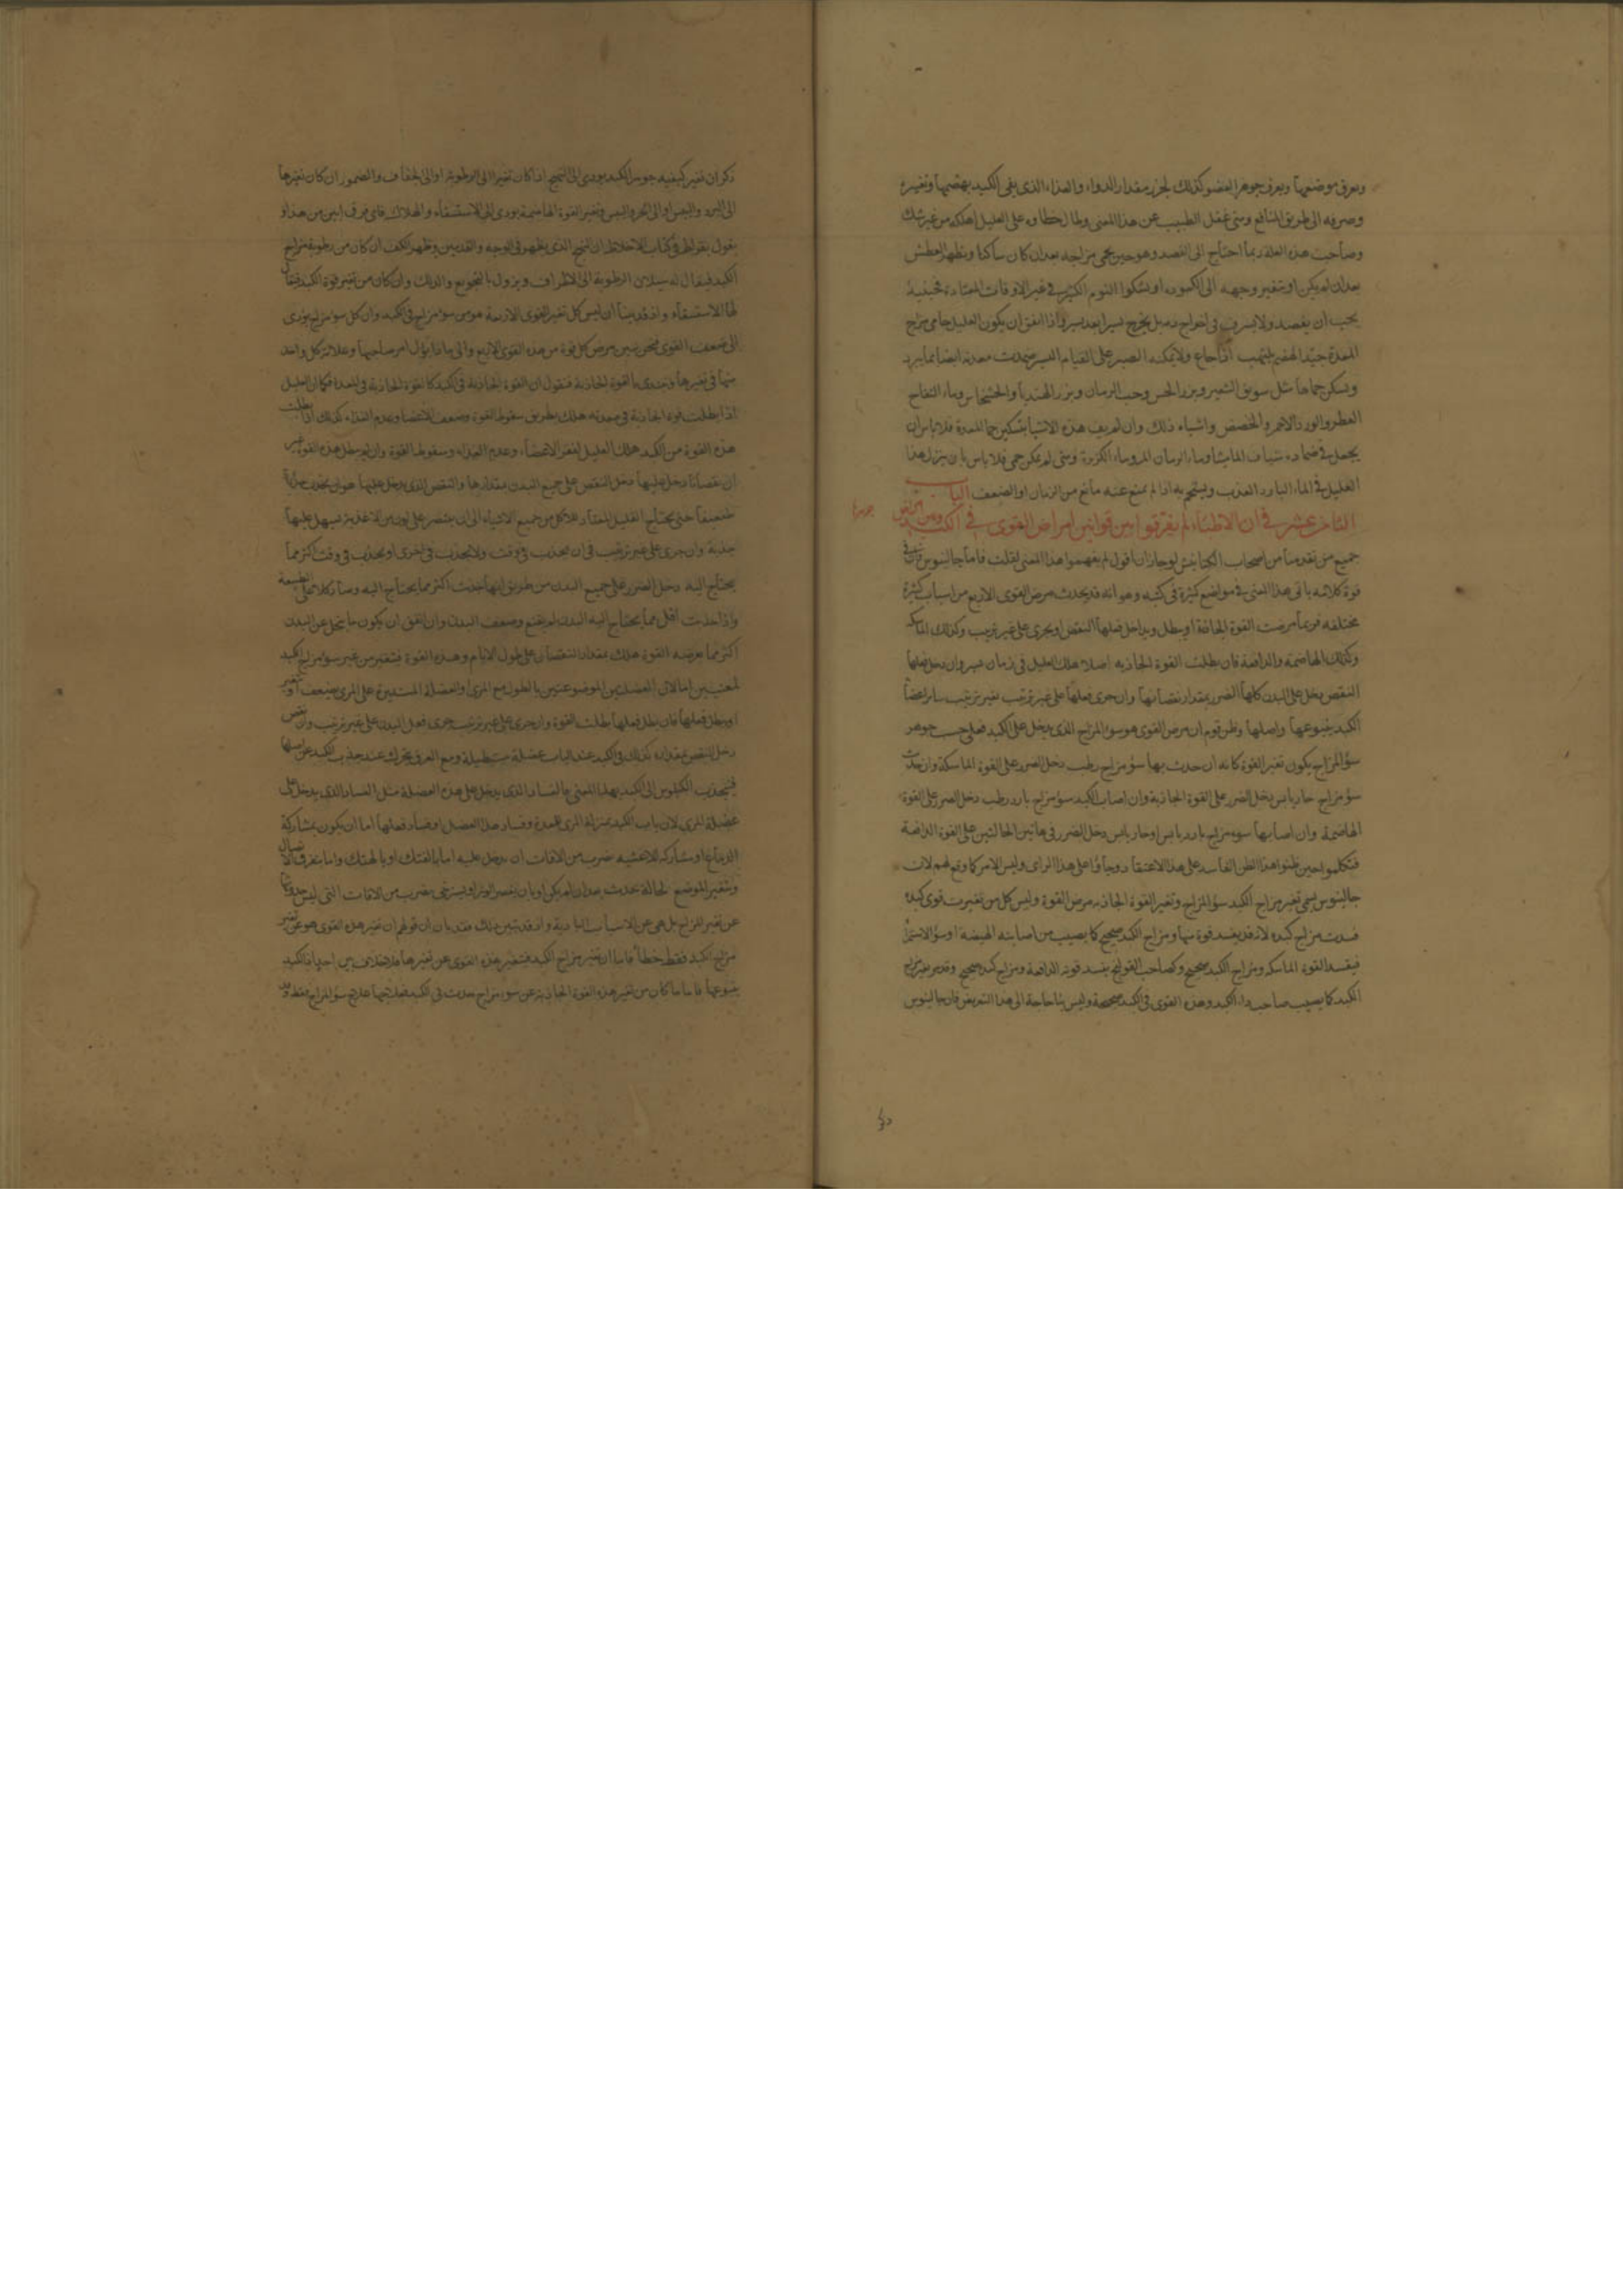 ويعرف موضعها ويعرف جوهر العضو كذلك ليحرز مقدار الدواء والغذاء الذي يفي الكبد بهضمها وتغييره
وصرفه الى طريق المنافع ومتى غفل الطبيب عن هذا المعنى وطال خطاوه على العليل اهلكه من غير شك
وصاحب هذه العلة ربما احتاج الى الفصد وهو حين يحمى مزاجه بعد ان كان ساكنا ويظهر العطش
بعد ان لم يكن او يتغير وجهه الى الكمودة او يشكوا النوم الكثير في غير الاوقات المعتادة فحينئذ
يجب ان يفصد ولا يسرف في اخراج دمه بل يخرج يسيرا بعد يسير واذا اتفق ان يكون العليل حامى مزاج
المعدة جيد الهضم يلتهب اذا جاع ولا يمكنه الصبر على القيام اليسير ضمدت معدته ايضا بما يبرد
ويسكن حماها مثل سويق الشعير وبزر الخس وحب الرمان وبزر الهندبا والخشخاش وماء التفاح
العطر والورد الاحمر والحضض واشباه ذلك وان لم يف هذه الاشيا بتسكين حما المعدة فلا باس ان
يجعل في ضماده شياف الماميثا وماء الرمان المز وماء الكزبرة ومتى لم يمكن حمى فلا باس بان ينزل هذا
العليل في الماء البارد العذب ويستحم به اذا لم يمنع عنه مانع من الزمان او الضعف الباب
الثامن عشر في ان الاطباء لم يفرقوا بين قوانين امراض القوى في الكبد وبين تغير
جوهرها
جميع من تقدمنا من اصحاب الكنانيش لو جاز ان اقول لم يفهموا هذا المعنى لقلت فاما جالينوس فان في
قوة كلامه ياتى هذا المعنى في مواضع كثيرة في كتبه وهو انه قد يحدث مرض القوى الاربع من اسباب كثيرة
مختلفة فربما مرضت القوة الجاذبة او يبطل ويداخل فعلها النقص او يجرى على غير ترتيب وكذلك الماسكه
وكذلك الهاضمة والدافعة فان بطلت القوة الجاذبه اصلا هلك العليل في زمان يسير وان دخل فعلها
النقص دخل على البدن كلها الضرر بمقدار نقصانها وان جرى فعلها على غير ترتيب تغير ترتيب ساير اعضا
الكبد ينبوعها واصلها وظن قوم ان مرض القوى هو سوء المزاج الذى يدخل على الكبد فعلى حسب جوهر
سؤ المزاج يكون تغير القوة كانه ان حدث بها سؤ مزاج رطب دخل الضرر على القوة الماسكة وان حدث
سؤ مزاج حار يابس دخل الضرر على القوة الجاذبة وان اصاب الكبد سؤ مزاج بارد رطب دخل الضرر على القوة
الهاضمة وان اصابها سوء مزاج بارد يابس او حار يابس دخل الضرر في هاتين الحالتين على القوة الدافعة
فتكلموا حين ظنوا هذا الظن الفاسد على هذا الاعتقاد وجاؤا على هذا الراى وليس الامر كما وقع لهم لان
جالينوس يسمى تغير مزاج الكبد سؤ المزاج وتغير القوة الجاذبه مرض القوة وليس كل من تغيرت قوى كبده
فسدت مزاج كبده لانه قد يفسد قوة منها ومزاج الكبد صحيح كما يصيب من اصابته الهيضة او سؤ الاستمرا
فيفسد القوة الماسكه ومزاج الكبد صحيح وكصاحب القولنج يفسد قوته الدافعة ومزاج كبده صحيح وقد يتغير مزاج
الكبد كما يصيب صاحب داء الكبد وهذه القوى في الكبد صحيحة وليس بنا حاجة الى هذا التعريض فان جالينوس
ذكر
ذكر ان تغير كيفية جوهر الكبد يودى الى التهيج اذا كان تغيرا الى الرطوبة او الى الجفاف والضمور ان كان تغيرها
الى البرد واليبس او الى الحر واليبس وتغير القوة الهاضمة يودى الى الاستسقاء والهلاك فاى فرق ابين من هذا و
يقول بقراط في كتاب الاخلاط ان التهيج الذى يظهر في الوجه والقدمين وظهر الكف ان كان من رطوبة مزاج
الكبد فيقال له سيلان الرطوبة الى الاطراف ويزول بالتجويع والدلك وان كان من تغير قوة الكبد فيقال
لها الاستسقاء واذ قد بينا ان ليس كل تغير القوى الاربعة هو من سوء مزاج في الكبد وان كل سوء مزاج يؤدى
الى ضعف القوى فنحن نبين مرض كل قوة من هذه القوى الاربع والى ماذا يؤل امر صاحبها وعلامة كل واحد
منها في تغيرها ونبتدى بالقوة الجاذبة فنقول ان القوة الجاذبة في الكبد كالقوة الجاذبة في المعدة فكما ان العليل
اذا بطلت قوة الجاذبة في معدته هلك بطريق سقوط القوة وضعف الاعضا وعدم الغذاء كذلك اذا بطلت
هذه القوة من الكبد هلك العليل لفقر الاعضاء وعدم الغذاء وسقوط القوة وان لم يبطل هذه القوة غير
ان نقصانا دخل عليها دخل النقص على جميع البدن بمقدارها والنقص الذى يدخل عليها هو ان يجذب جذبا
ضعيفا حتى يحتاج العليل المعتاد للاكل من جميع الاشياء الى ان يقتصر على لون من الاغذية يسهل عليها
جذبه وان جرى على غير ترتيب في ان يجذب في وقت ولا يجذب في اخرى او يجذب في وقت اكثر مما
يحتاج اليه دخل الضرر على جميع البدن من طريق انها جذبت اكثر مما يحتاج اليه وصار كلا على الطبيعة
واذا جذبت اقل مما يحتاج اليه البدن لم يقنع وضعف البدن وان اتفق ان يكون ما ينحل عن البدن
اكثر مما هذه القوة هلك بمقدار النقصان على طول الايام وهذه القوة فيتغير من غير سوء مزاج الكبد
لمعنيين اما لان العضلتين الموضوعتين بالطول مع المرى والعضلة المستديرة على المرى يضعف او يتغير
او يبطل فعلها فان بطل فعلها بطلت القوة وان جرى على غير ترتيب جرى فعل البدن على غير ترتيب وان نقص
دخل النقص بمقداره كذلك في الكبد عند الباب عضلة مستطيلة ومع العرق يتحرك عند جذب الكبد
فينجذب الكيلوس الى الكبد بهذا المعنى فالفساد الذى يدخل على هذه العضلة مثل الفساد الذى يدخل على
عضلة المرى لان باب الكبد بمنزلة المرى للمعدة وفساد هذا العضل او فساد فعلها اما ان يكون بمشاركة
الدماغ او مشاركة للاغشيه ضرب من الافات ان يدخل عليه اما بالفتك او بالهتك واما بتفرق الاتصال
وتتغير الموضع لحالة تحدث بعد ان لم يكن او بان يقصر الوتر او يسترخى بضرب من الافات التى ليس حدوثها
عن تغير المزاج بل هى عن الاسباب البادية واذ قد تبين ذلك فقد بان ان قولهم ان تغير هذه القوى هو عن تغير
مزاج الكبد فقط خطأ فاما ان تغير مزاج الكبد فيتغير هذه القوى عن تغيرها فلا خلاف بين احد اذ الكبد
ينبوعها فاما ما كان من تغير هذه القوة الجاذبة عن سوء مزاج حدث في الكبد فعلاجها علاج سوء المزاج فقط وقد